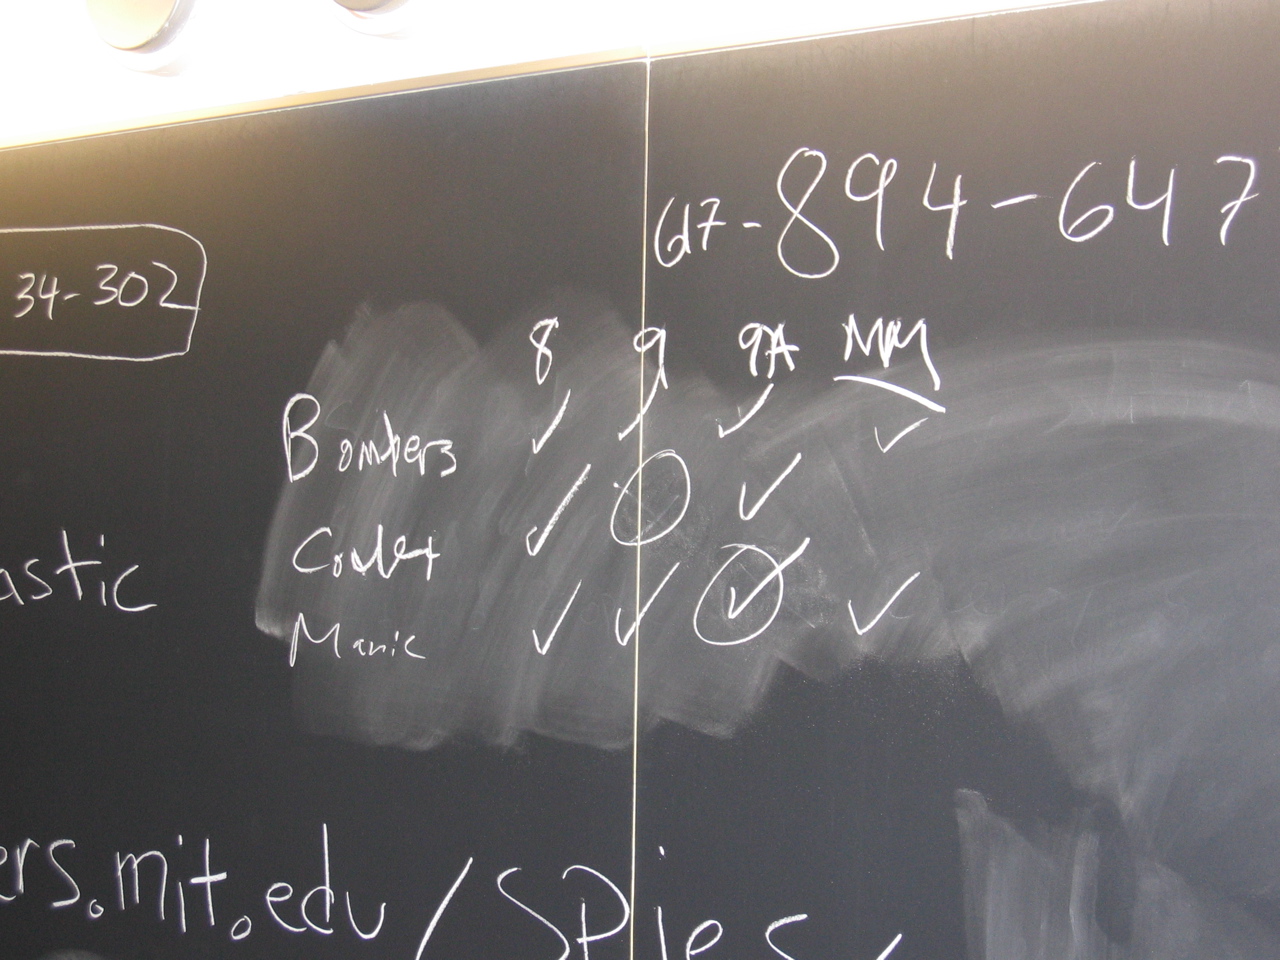 617-894-647
34-302
8 9 9A MM
Bombers ✓ ✓ ✓ ✓
✓ ✓
Manic ✓ ✓ ✓ ✓
astic
ers.mit.edu/spies